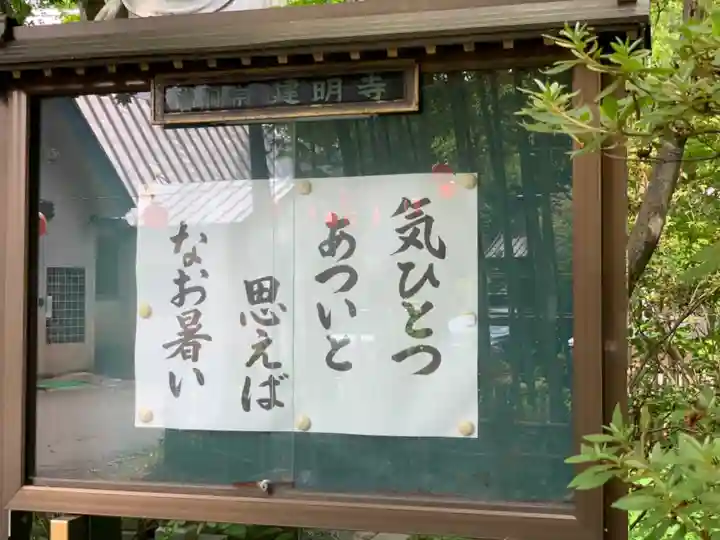 建明寺
気ひとつ
あついと
思えば
なお暑い